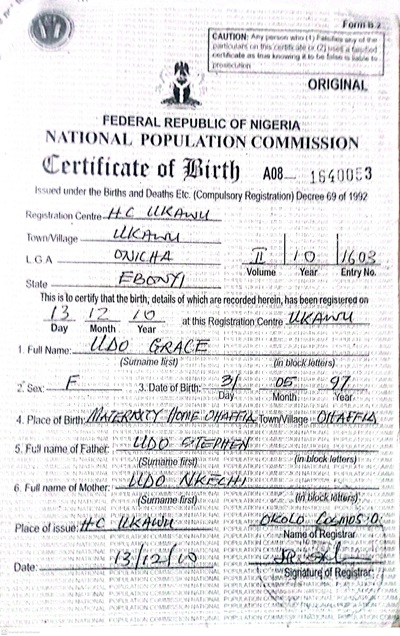 Form B.2
CAUTION: Any person who (1) Falsifies any of the
particulars on this certificate or (2) uses a falsified
certificate as true knowing it to be false is liable to
prosecution
ORIGINAL
FEDERAL REPUBLIC OF NIGERIA
NATIONAL POPULATION COMMISSION
Certificate of Birth A08— 1640053
Issued under the Births and Deaths Etc. (Compulsory Registration) Decree 69 of 1992
Registration Centre H.C UKAWU
Town/Village UKAWU
L G A ONICHA
II 10 1603
Volume Year Entry No.
State EBONYI
This is to certify that the birth, details of which are recorded herein, has been registered on
13 12 10 at this Registration Centre UKAWU
Day Month Year
1. Full Name: UDO GRACE
(Surname first) (in block letters)
2. Sex: F 3. Date of Birth: 31 05 97
Day Month Year
4. Place of Birth: MATERNITY HOME OHAFFIA Town/Village OHAFFIA
5. Full name of Father: UDO STEPHEN
(Surname first) (in block letters)
6. Full name of Mother: UDO NKECHI
(Surname first) (in block letters)
Place of issue: H.C UKAWU OKOLO COSMOS .O.
Name of Registrar
Date: 13/12/10
Signature of Registrar